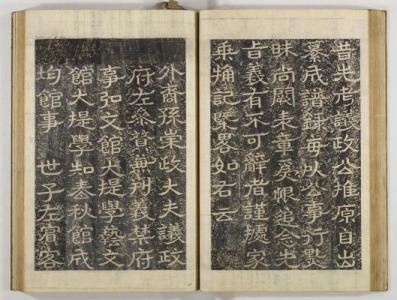 昔先考議政公推原自出
纂成譜錄每以公事行
昧尚闕章恨追念先
旨義有不可辭者謹據家
乘記槩畧如右云
外裔孫崇政大夫議政
府左叅贊兼判義禁府
事弘文館大提學藝文
館大提學知春秋館成
均館事 世子左賓客